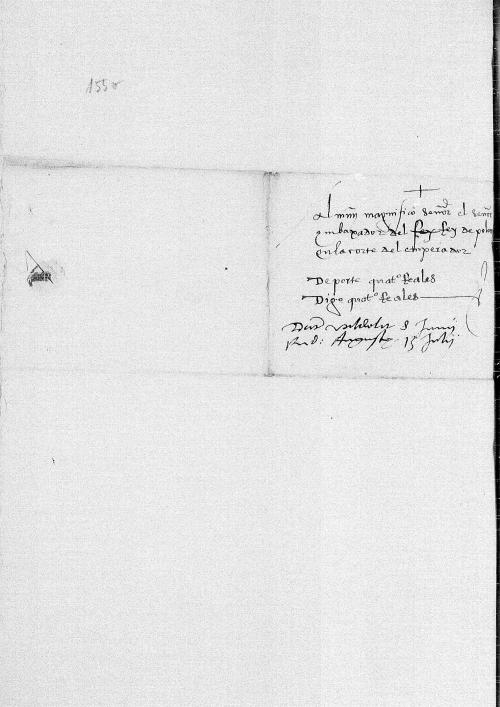 1550
Al muy magnifico señor el señor
embaxador del Rey de polo
en la corte del emperador
De porte quatº Reales
Digo quatº Reales
8 Junii
Auguste 15 Julii